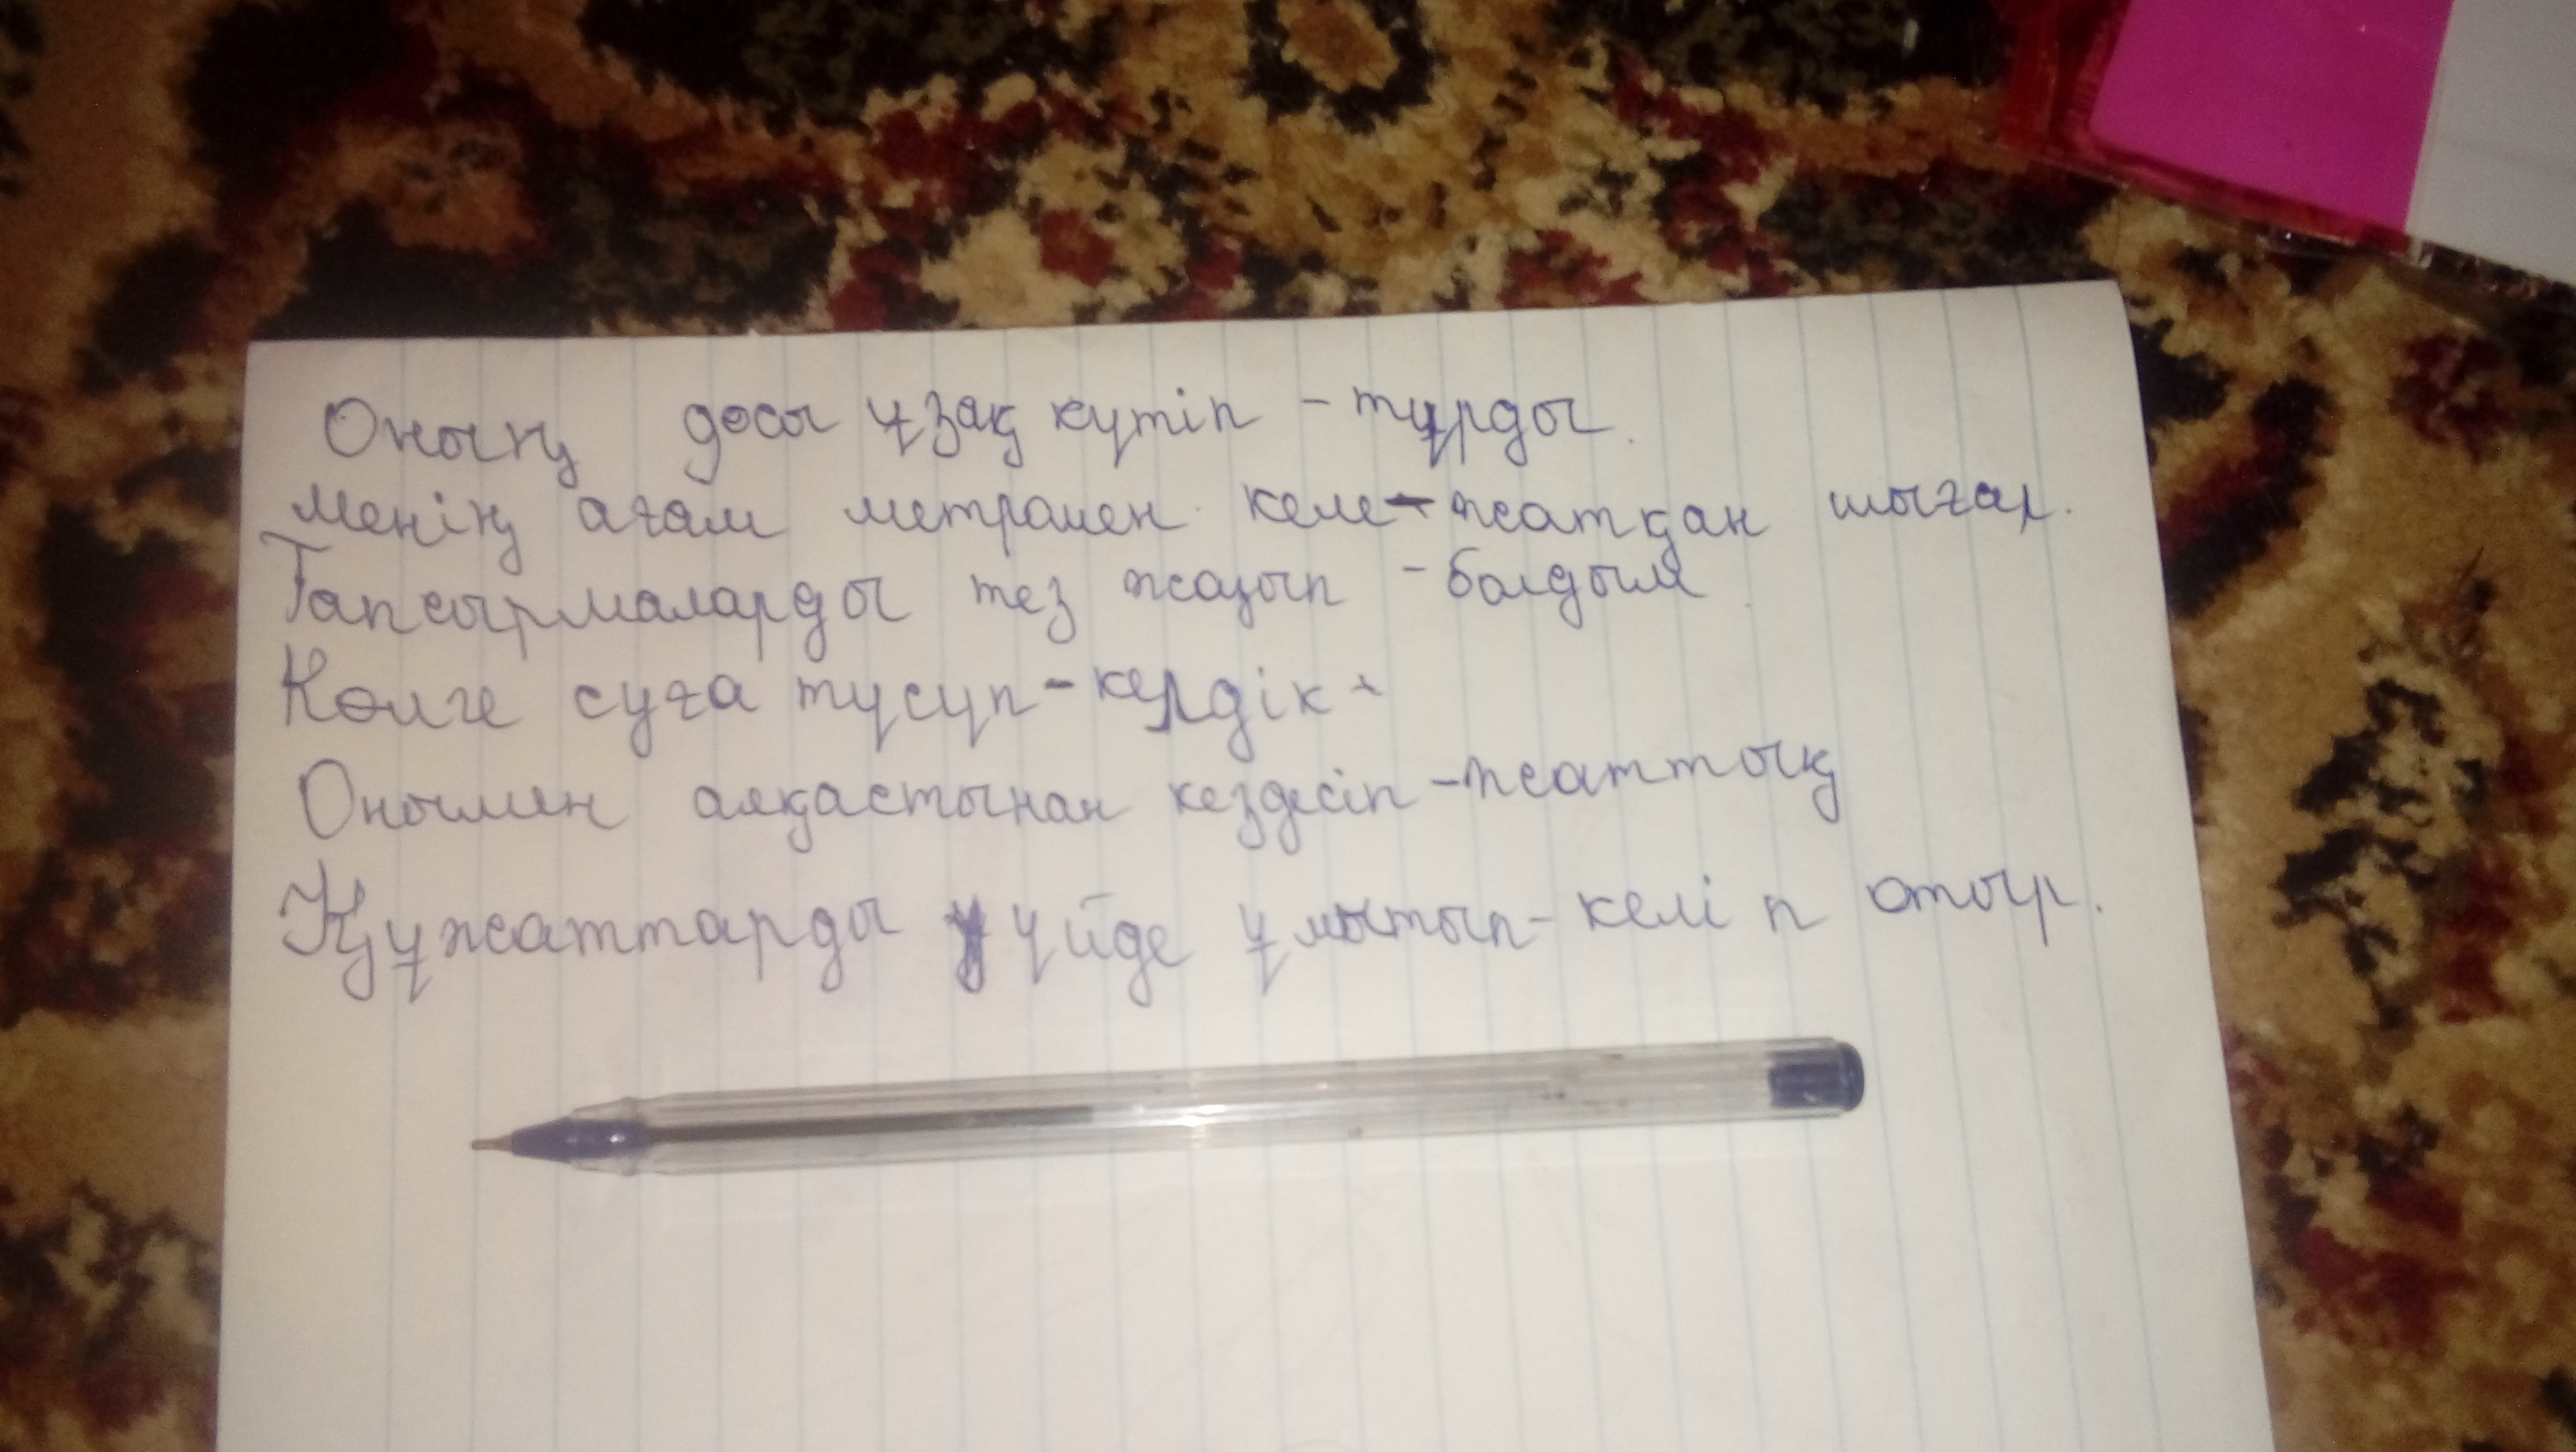 Оның досы ұзақ күтіп - тұрды.
Менің ағам метрамен келе-жатқан шығар.
Тапсырмаларды тез жазып - болдым.
Көлге суға түсүп-келдік.
Онымен алқастынан кездесіп -жаттық
Құжаттарды үйде ұмытып- келіп отыр.